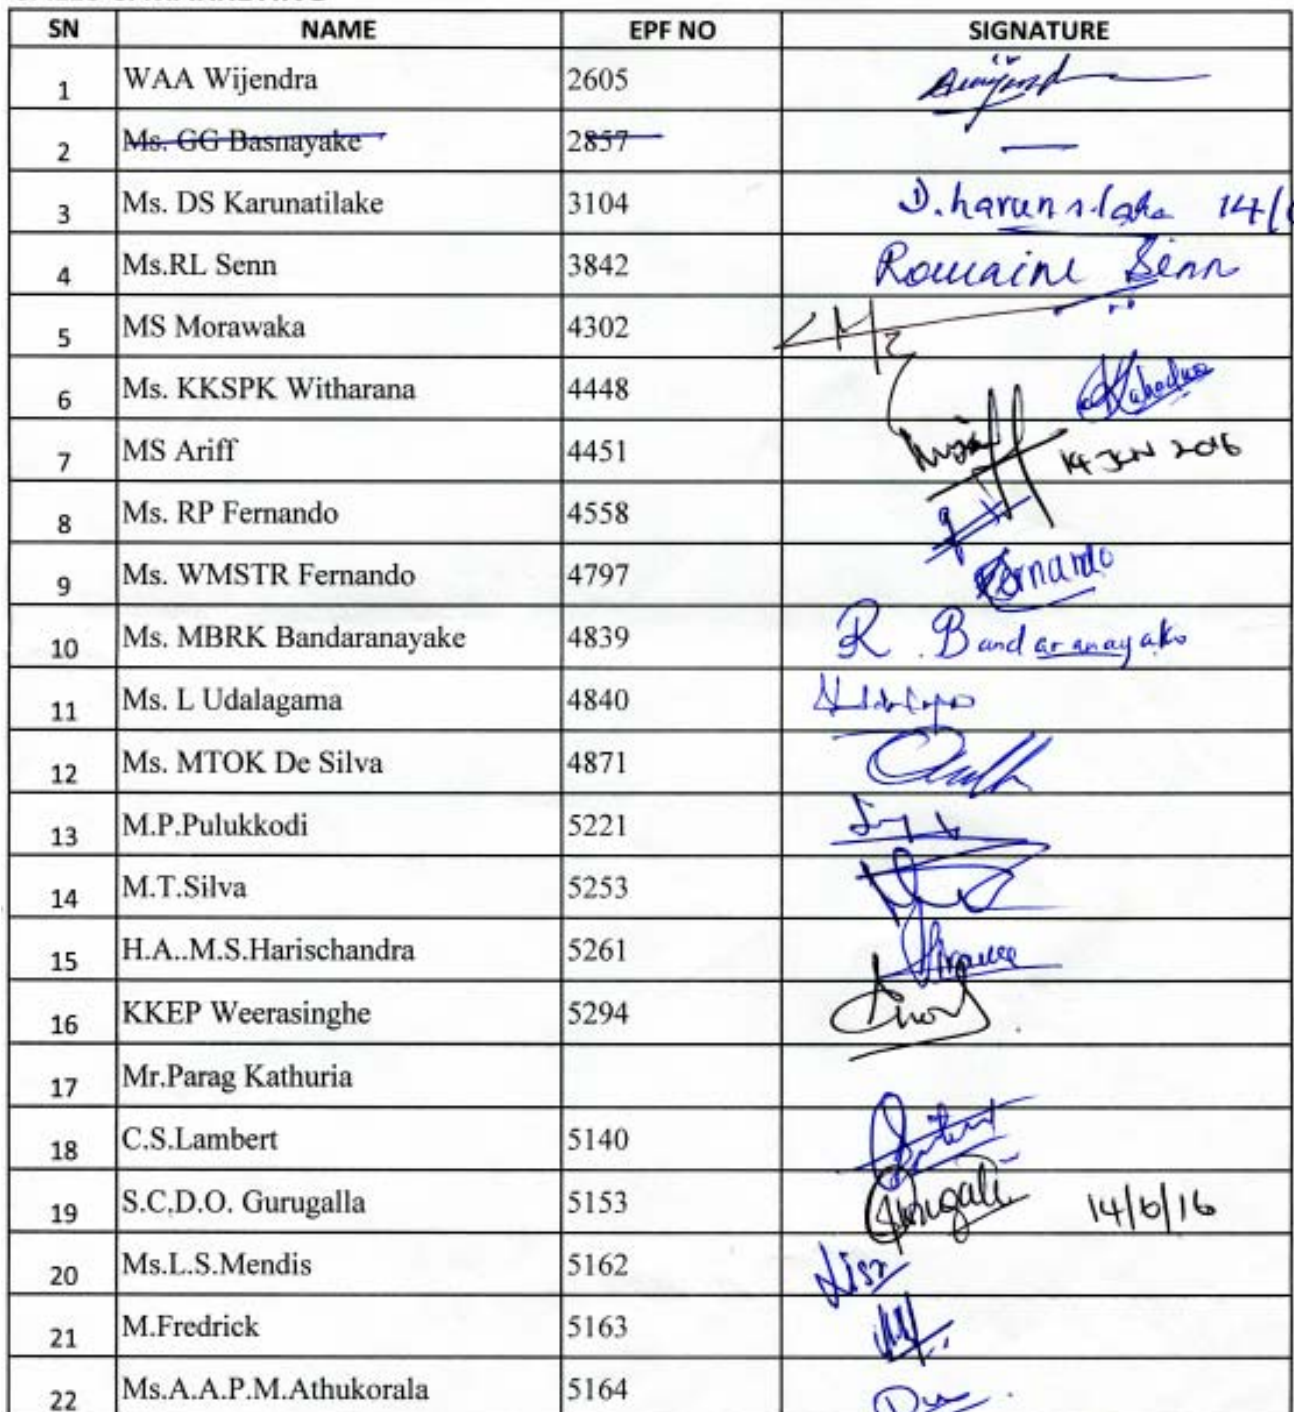 SN NAME EPF NO SIGNATURE
1 WAA Wijendra 2605
2 Ms. GG Basnayake 2857
3 Ms. DS Karunatilake 3104 14/
4 Ms.RL Senn 3842 Romaine Senn
5 MS Morawaka 4302
6 Ms. KKSPK Witharana 4448
7 MS Ariff 4451 14 JUN 2016
8 Ms. RP Fernando 4558
9 Ms. WMSTR Fernando 4797 Fernando
10 Ms. MBRK Bandaranayake 4839 R. Bandaranayake
11 Ms. L Udalagama 4840
12 Ms. MTOK De Silva 4871
13 M.P.Pulukkodi 5221
14 M.T.Silva 5253
15 H.A..M.S.Harischandra 5261
16 KKEP Weerasinghe 5294
17 Mr.Parag Kathuria
18 C.S.Lambert 5140
19 S.C,D.O. Gurugalla 5153 14/6/16
20 Ms.L.S.Mendis 5162
21 M.Fredrick 5163
22 Ms.A.A.P.M.Athukorala 5164